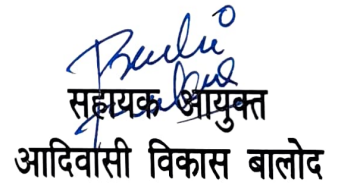 सहायक आयुक्त
आदिवासी विकास बालोद